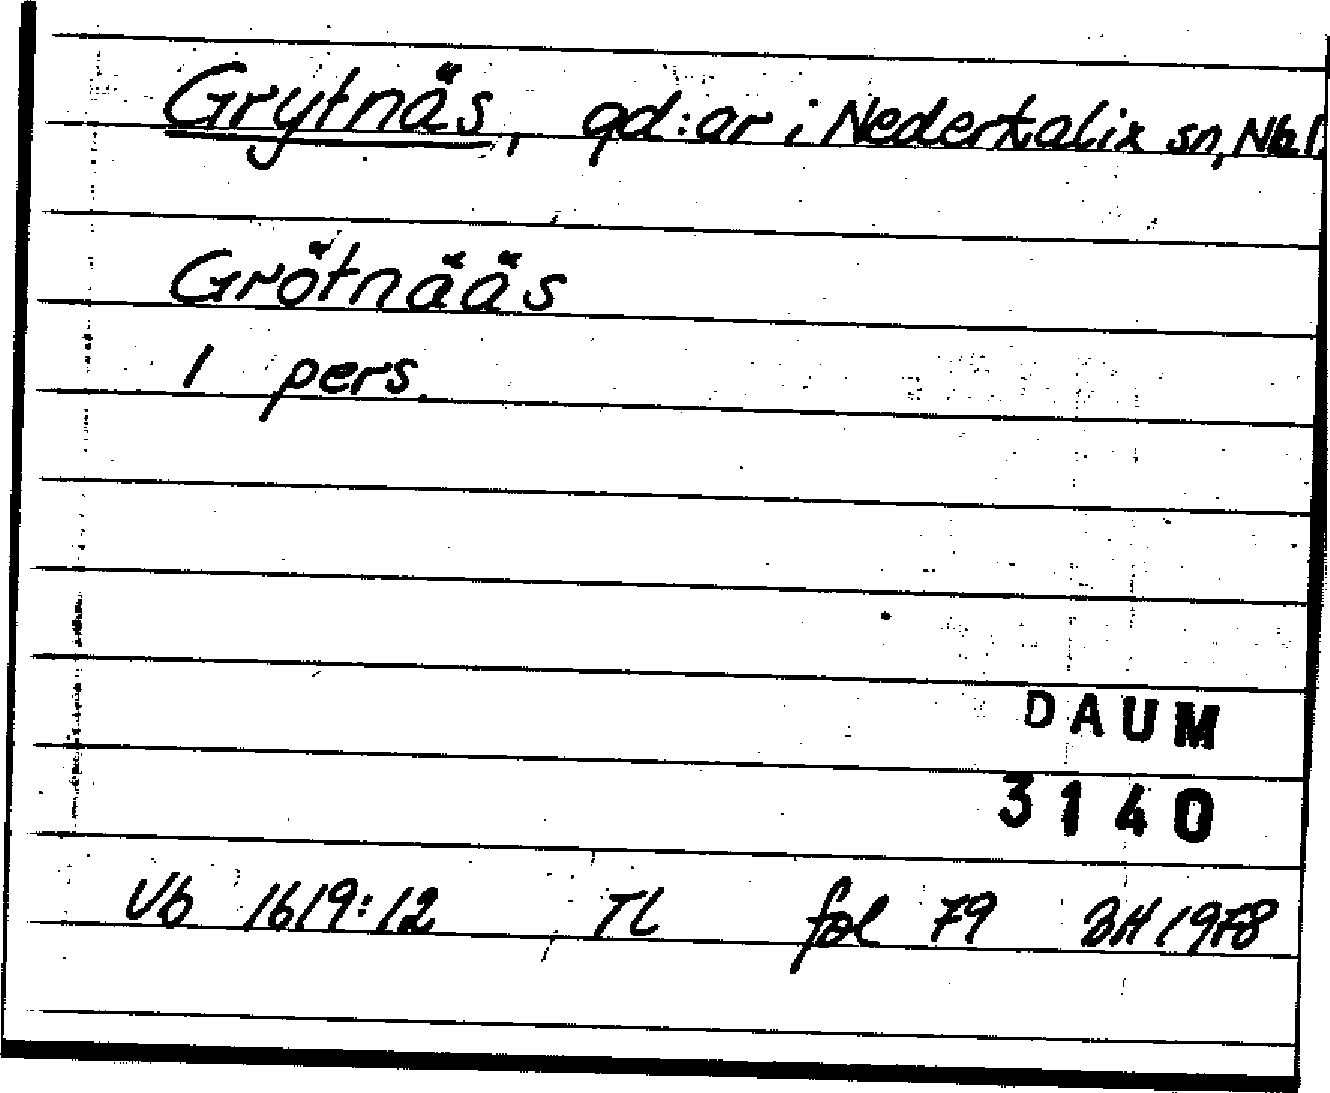 Grytnäs, gd:ar i Nederkalix sn, Nb l.
Grötnääs
1 pers.
DAUM
3140
Vb 1619:12 TL fol 79 BH 1978